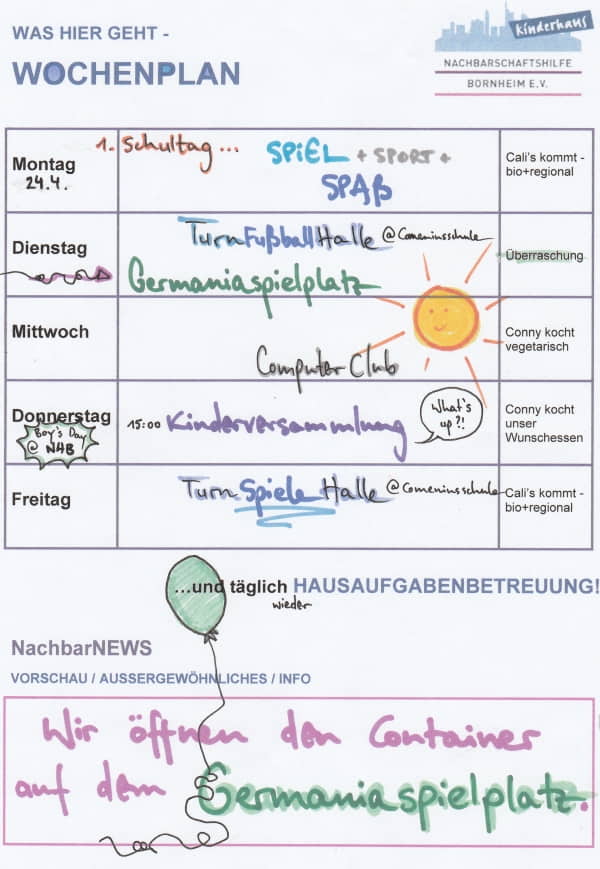 WAS HIER GEHT -
WOCHENPLAN
Kinderhaus
NACHBARSCHAFTSHILFE
BORNHEIM E.V.
Montag
24.4.
1. Schultag ...
SPIEL + SPORT +
SPAß
Cali's kommt -
bio+regional
Dienstag
TurnFußballHalle @Comeniusschule
Germaniaspielplatz
Überraschung
Mittwoch
Computer Club
Conny kocht
vegetarisch
Donnerstag
Boy's Day
@ NHB
15:00 Kinderversammlung
What's
up?!
Conny kocht
unser
Wunschessen
Freitag
Turn Spiele Halle @Comeniusschule
Cali's kommt -
bio+regional
...und täglich HAUSAUFGABENBETREUUNG!
wieder
NachbarNEWS
VORSCHAU / AUSSERGEWÖHNLICHES / INFO
Wir öffnen den Container
auf dem Germaniaspielplatz.